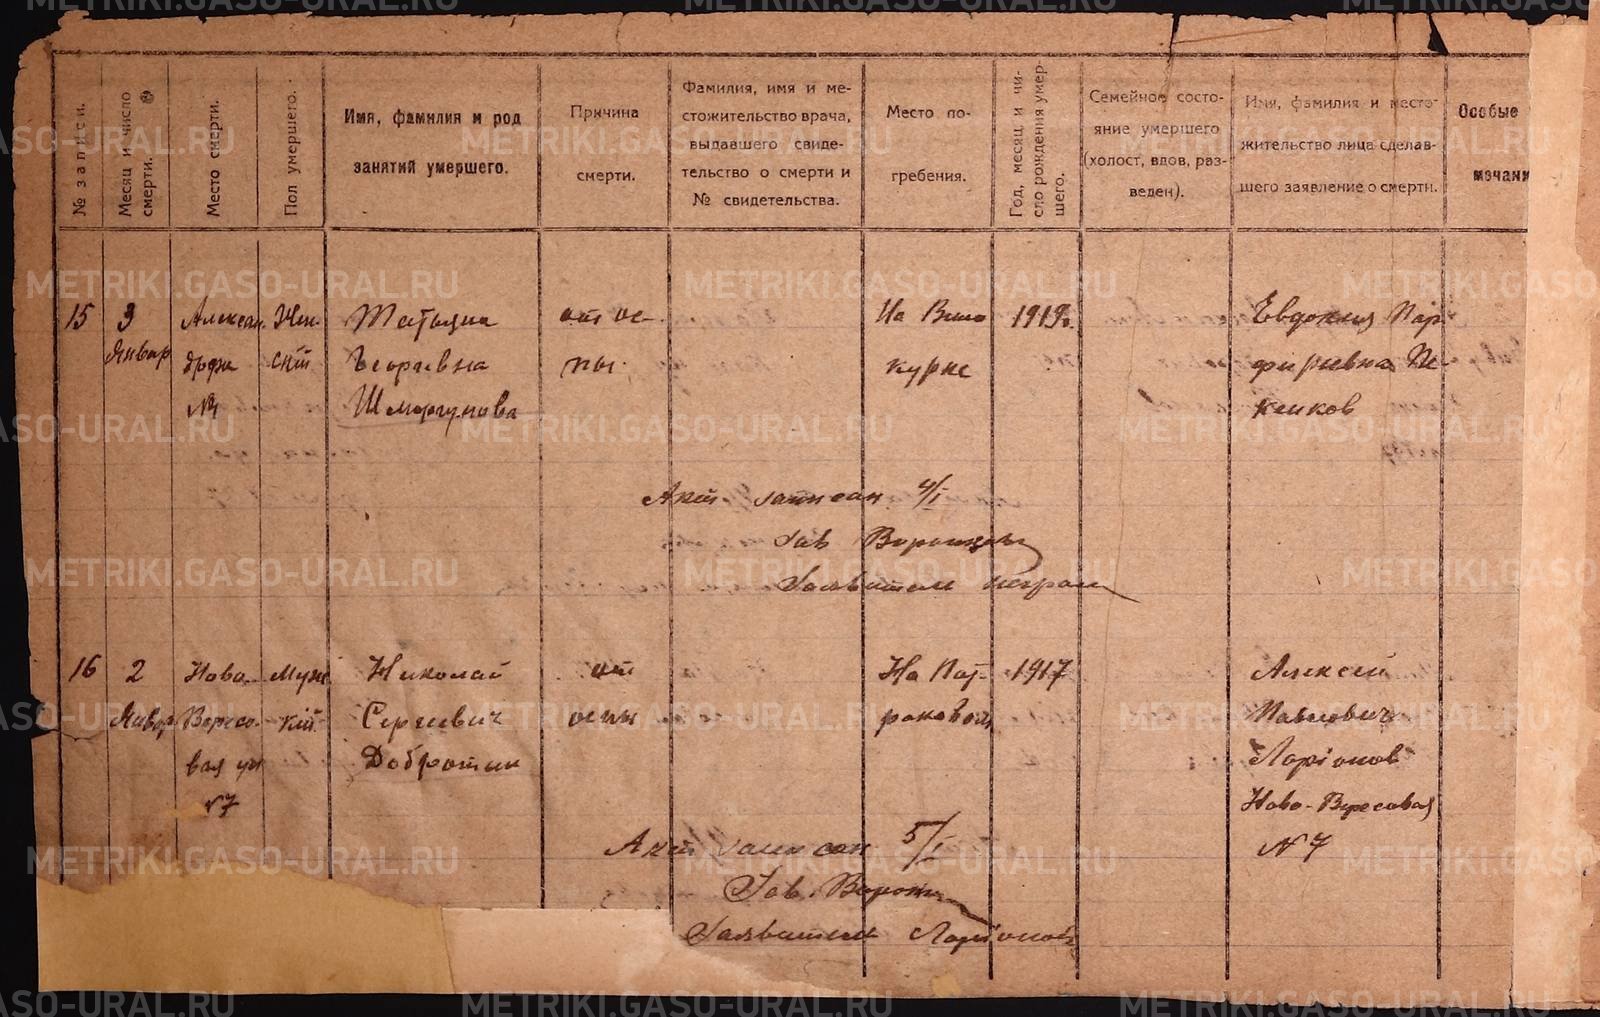 № записи.
Месяц и число смерти.
Место смерти.
Пол умершего.
Имя, фамилия и род занятий умершего.
Причина смерти.
Фамилия, имя и местожительство врача, выдавшего свидетельство о смерти и № свидетельства.
Место погребения.
Год, месяц и число рождения умершего.
Семейное состояние умершего (холост, вдов, разведен).
Имя, фамилия и местожительство лица сделавшего заявление о смерти.
Особые
мечани
15
3
Январ
Алексан
дрфи
№
Жен
ский
Татьяна
Георгиевна
Шморгунова
от ос-
пы.
На
курне
1919г.
Евдокия Пар
фирьевна
Акт записан 4/I
Зав
Заявитель неграм
16
2
Январ
Ново
Вересо
вая ул
№7
Муж
кий
Николай
Сергиевич
Добротин
от
оспы
На Пат-
раковой
1917
Алексей
Павлович
Ларіонов
Ново-Вересовая
№7
Акт записан 5/I
Зав.
Заявитель Ларіонов
METRIKI.GASO-URAL.RU